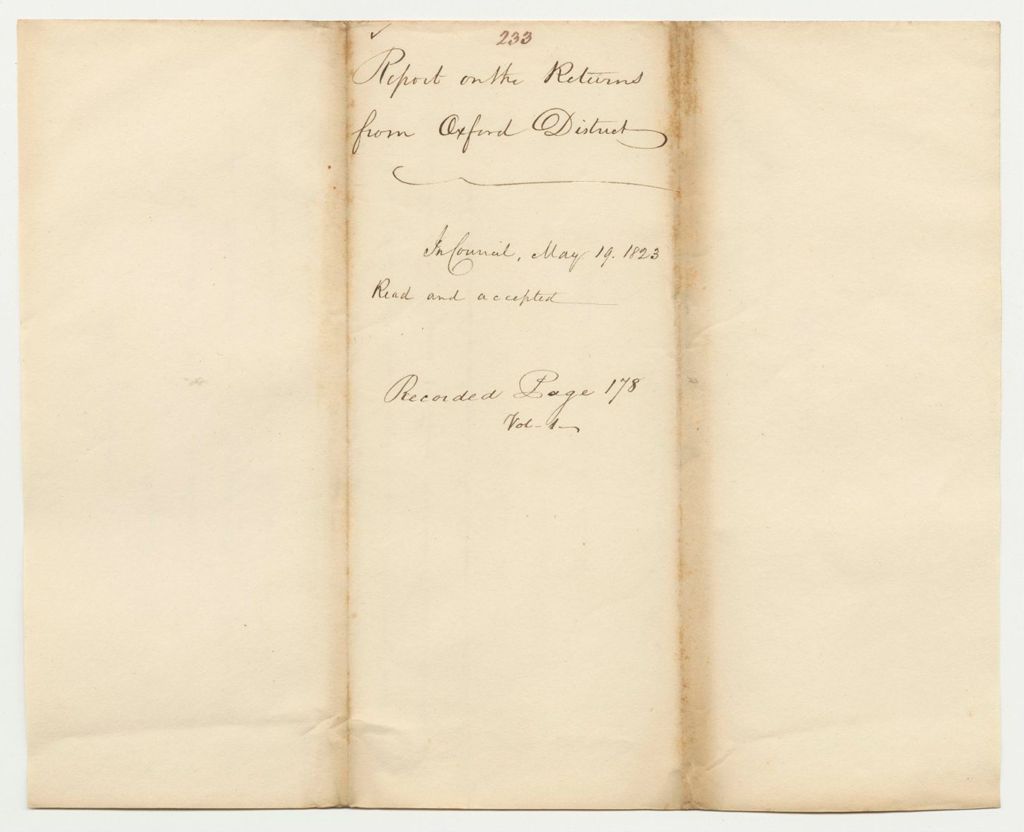 233
Report on the Returns
from Oxford District
In Council, May 19. 1823
Read and accepted
Recorded Page 178
Vol-1-